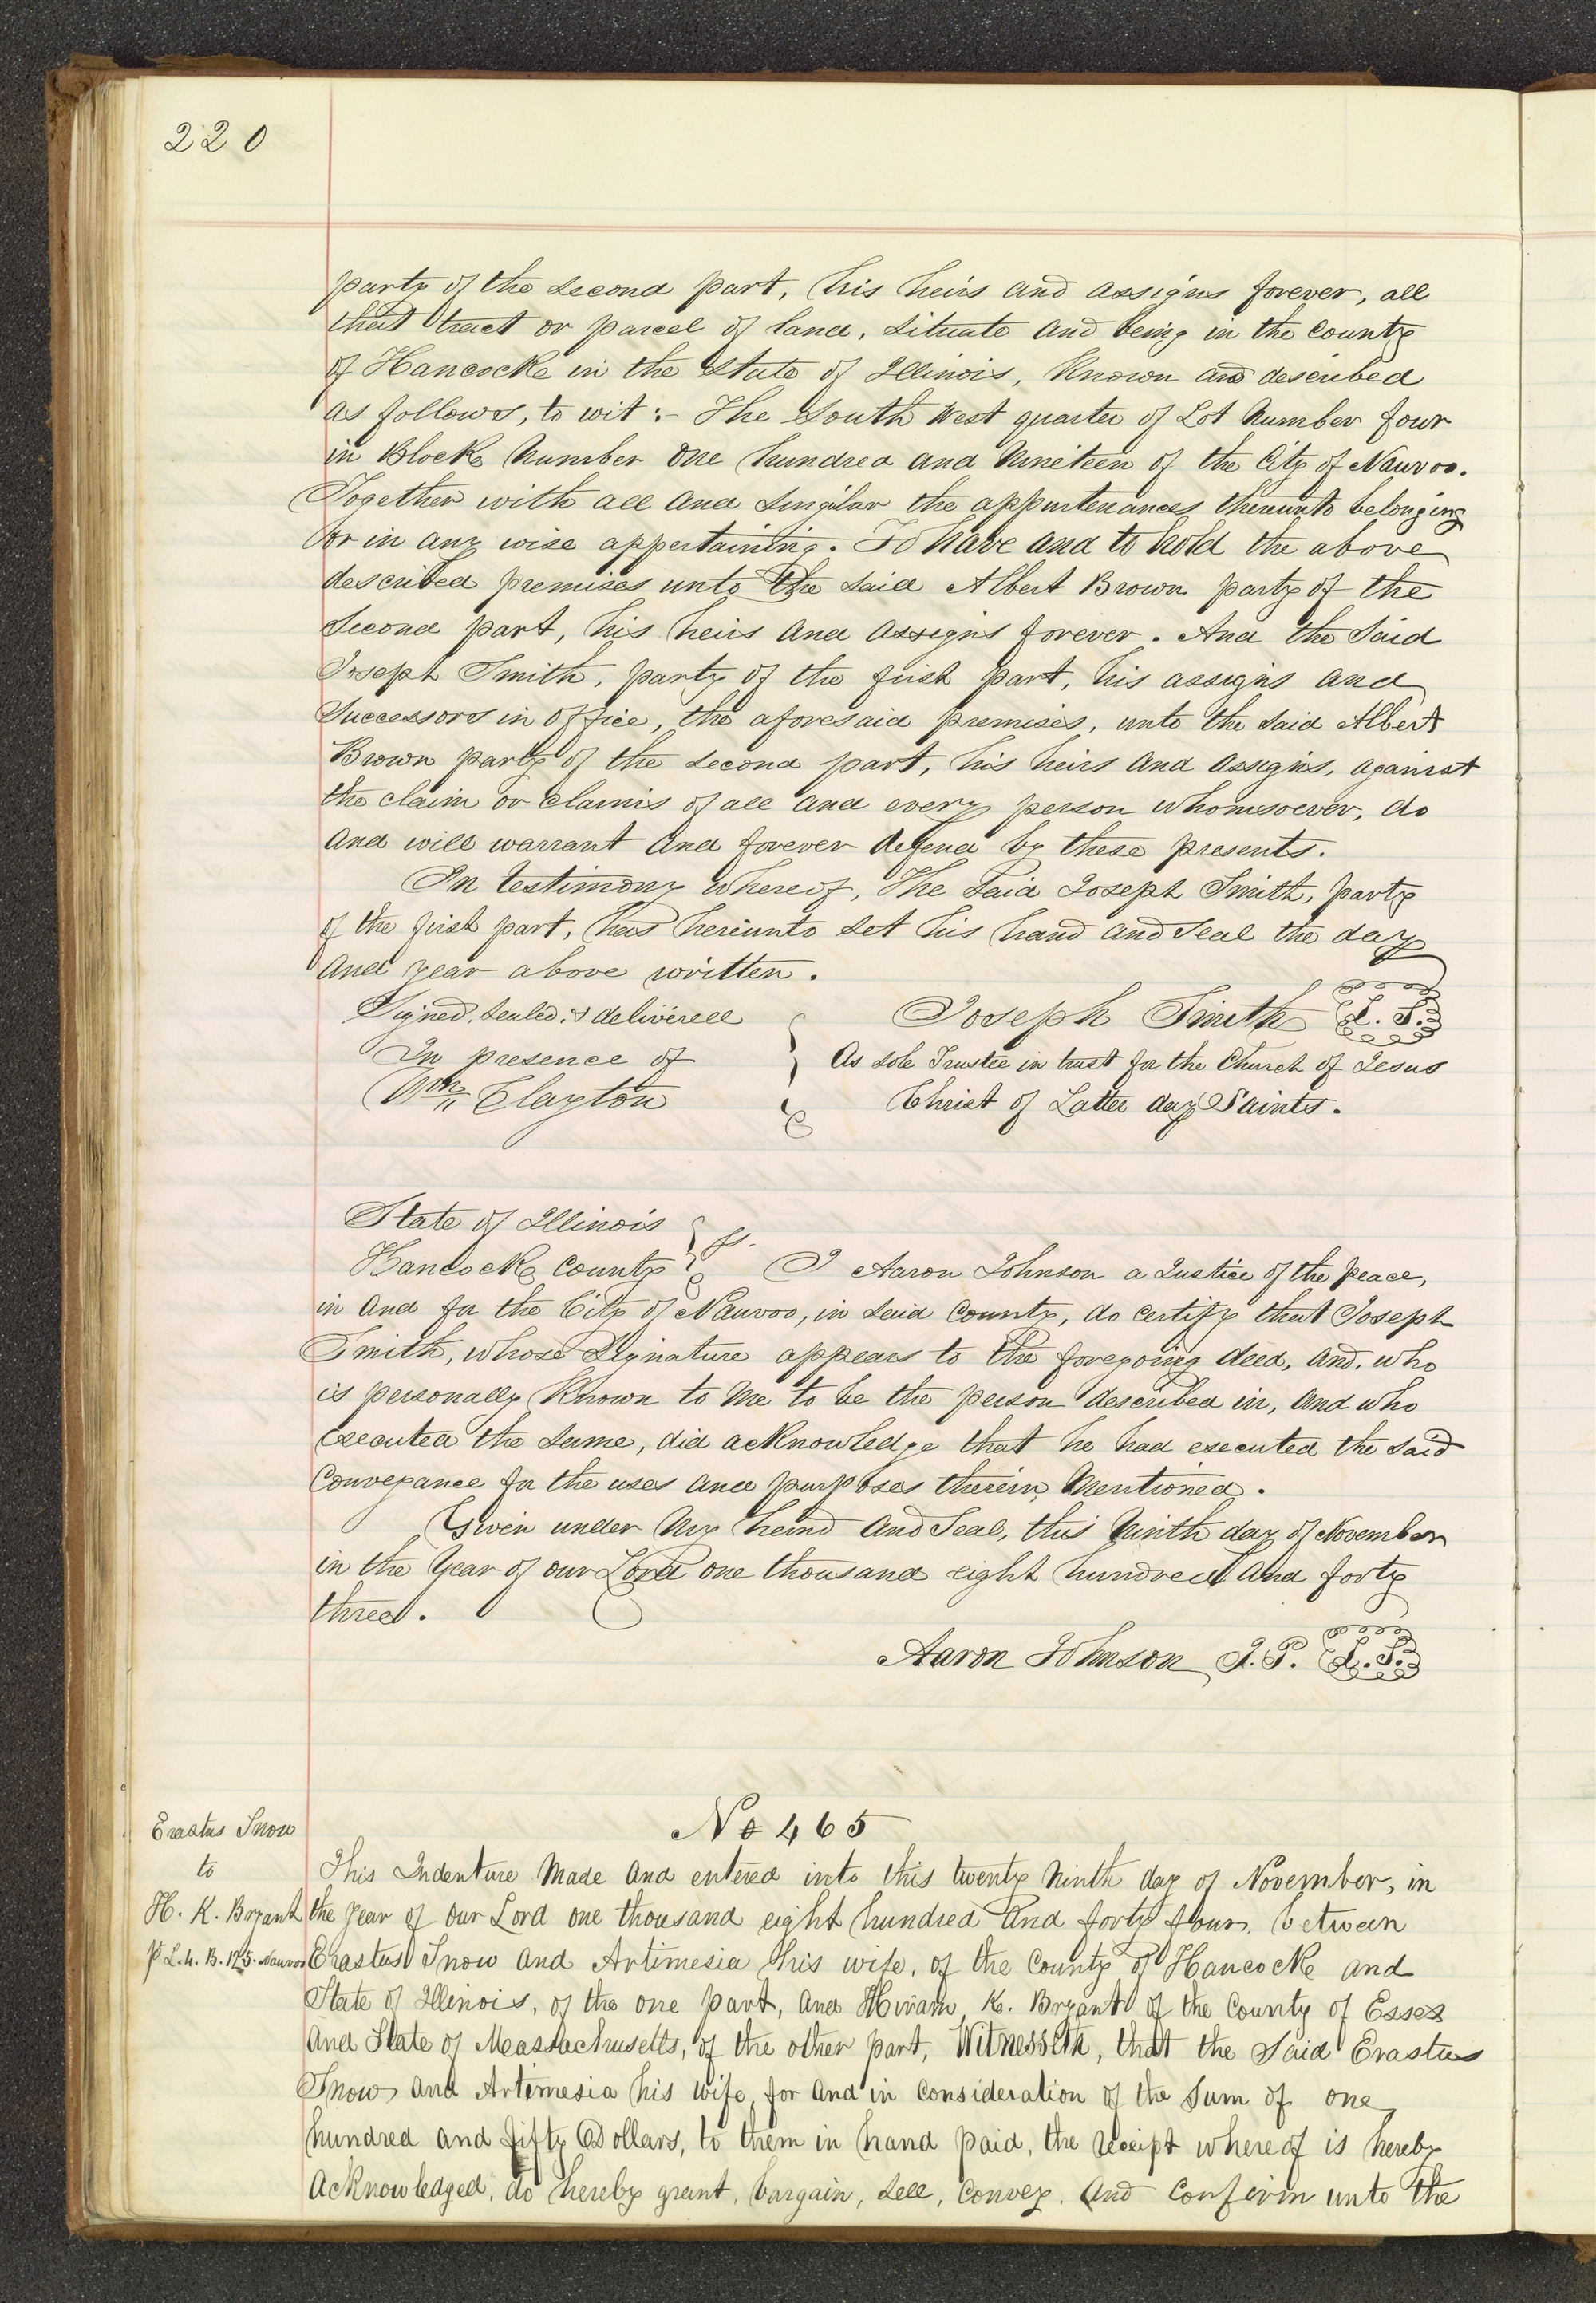 220
party of the second part, his heirs and assigns forever, all
that tract or parcel of land, situate and being in the County
of Hancocke in the State of Illinois, Known and described
as follows, to wit:- The South West quarter of Lot Number four
in Blocke Number One hundred and Nineteen of the City of Nauvoo.
Together with all and singular the appurtenances thereunto belonging
or in any wise appertaining. To have and to hold the above
described premises unto the said Albert Brown party of the
Second part, his heirs and assigns forever. And the Said
Joseph Smith, party of the first part, his assigns and
Successors in office, the aforesaid premises, unto the said Albert
Brown party of the second part, his heirs and assigns, against
the claim or claims of all and every person whomsoever, do
and will warrant and forever defend by these presents.
In testimony whereof, The Said Joseph Smith, party
of the first part, has hereunto set his hand and seal the day
and year above written.
Signed, sealed, & delivered
In presence of
Wm Clayton
Joseph Smith L. S.
As sole Trustee in trust for the Church of Jesus
Christ of Latter day Saints.
State of Illinois
Hancocke County } ss. I Aaron Johnson a Justice of the peace,
in and for the City of Nauvoo, in said County, do certify that Joseph
Smith, whose Signature appears to the foregoing deed, and. who
is personally Known to me to be the person described in, and who
executed the same, did acKnowledge that he had executed the said
Conveyance for the uses and purposes therein Mentioned.
Given under my hand and Seal, this Ninth day of November
in the Year of our Lord one thousand eight hundred and forty
three.
Aaron Johnson J. P. L. S.
No 465
Erastus Snow
to
H. K. Bryant
pt L. 4. B. 125. Nauvoo
This Indenture Made and entered into this twenty Ninth day of November, in
the year of our Lord one thousand eight hundred and forty four, between
Erastus Snow and Artimesia his wife, of the County of Hancocke and
State of Illinois, of the one part, and Hiram K. Bryant of the County of Essex
and State of Meassachusetts, of the other part, Witnesseth, that the Said Erastus
Snow and Artimesia his wife, for and in consideration of the Sum of one
hundred and fifty Dollars, to them in hand paid, the receipt whereof is hereby
acKnowledged, do hereby grant, bargain, sell, convey, and confirm unto the